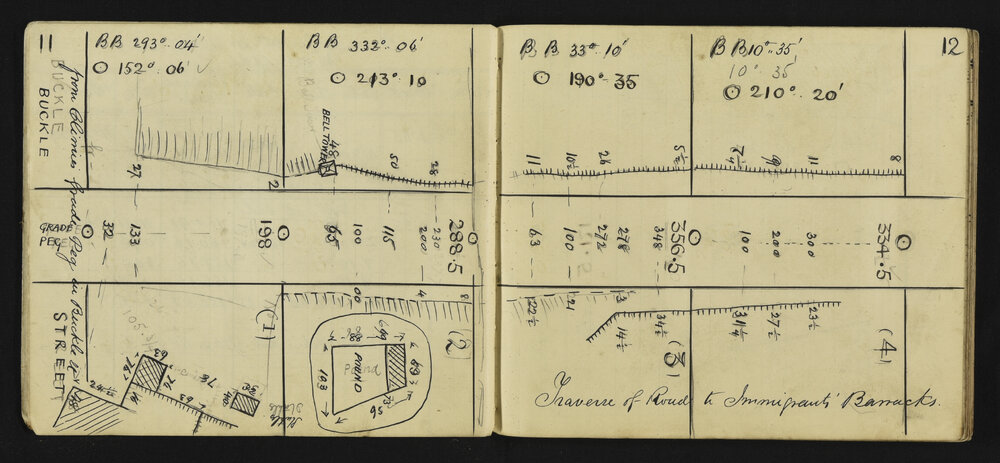 11
BB 293°.04'
⊙ 152°.06'
BUCKLE
BUCKLE
from Olimies Grade Peg in Buckle St
27
2
GRADE
PEG
32
133
198
STREET
(1)
76
76
89
78
BB 332°.06'
⊙ 213°.10
BELL TOWER
48
50
28
65
100
115
200
230
288.5
00
4
8
(2)
POUND
Pound
103
95
B B 33°.10'
⊙ 190°.35
11
10½
26
5½
63
100
272
278
348
356.5
22½
21
13
14½
34½
(3)
B B 10°.35'
10° 35'
⊙ 210°. 20'
12
7¼
9
11
8
100
200
300
334.5
31¼
27½
23½
(4)
Traverse of Road to Immigrants' Barracks.